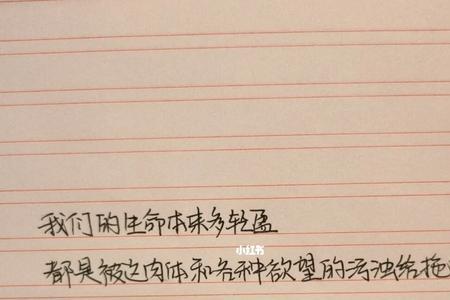 我们的生命本来多轻盈
小红书
都是被这肉体和各种欲望的污浊给拖